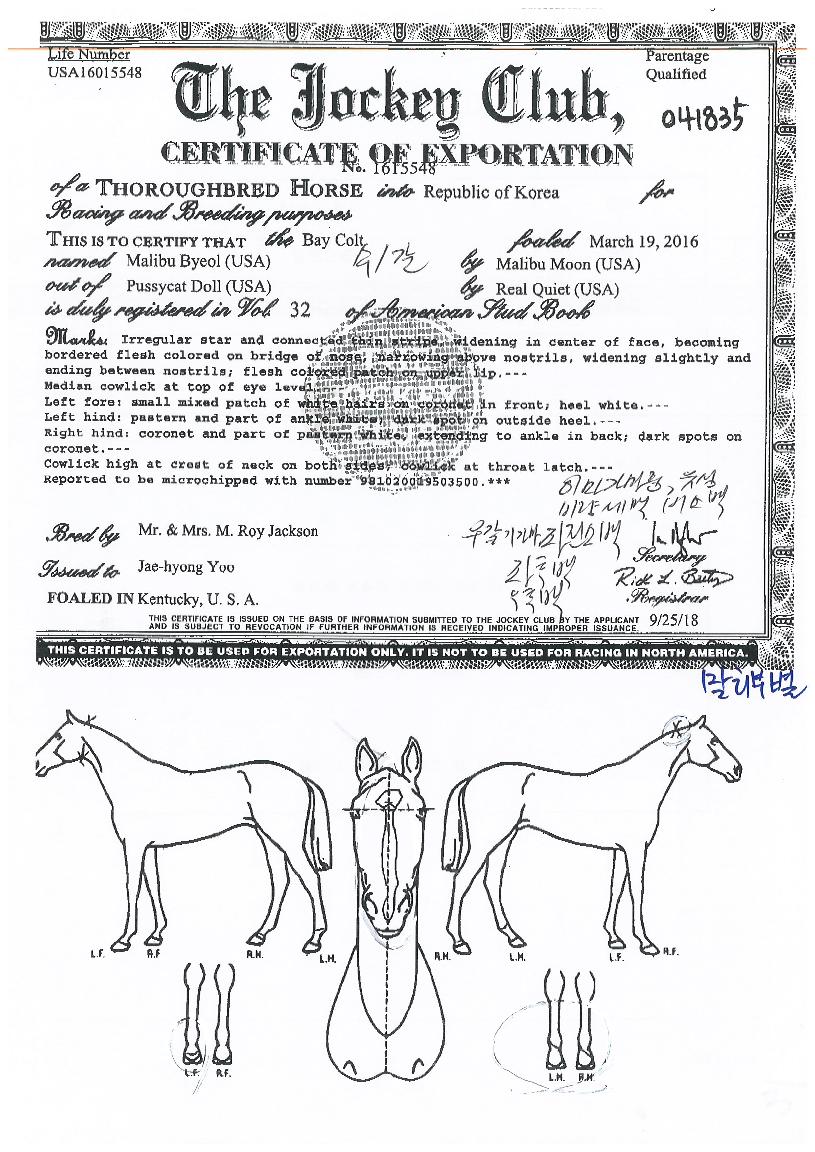 Life Number
USA16015548
Parentage
Qualified
The Jockey Club,
041835
CERTIFICATE OF EXPORTATION
No. 1615548
of a THOROUGHBRED HORSE into Republic of Korea for
Racing and Breeding purposes
THIS IS TO CERTIFY THAT the Bay Colt foaled March 19, 2016
named Malibu Byeol (USA) by Malibu Moon (USA)
out of Pussycat Doll (USA) by Real Quiet (USA)
is duly registered in Vol. 32 of American Stud Book
Marks: Irregular star and connected thin stripe, widening in center of face, becoming
bordered flesh colored on bridge of nose, narrowing above nostrils, widening slightly and
ending between nostrils; flesh colored patch on upper lip.---
Median cowlick at top of eye level.---
Left fore: small mixed patch of white hairs on coronet in front; heel white.---
Left hind: pastern and part of ankle white; dark spot on outside heel.---
Right hind: coronet and part of pastern white, extending to ankle in back; dark spots on
coronet.---
Cowlick high at crest of neck on both sides; cowlick at throat latch.---
Reported to be microchipped with number 981020019503500.***
Bred by Mr. & Mrs. M. Roy Jackson
Secretary
Issued to Jae-hyong Yoo
Registrar
FOALED IN Kentucky, U. S. A.
THIS CERTIFICATE IS ISSUED ON THE BASIS OF INFORMATION SUBMITTED TO THE JOCKEY CLUB BY THE APPLICANT
AND IS SUBJECT TO REVOCATION IF FURTHER INFORMATION IS RECEIVED INDICATING IMPROPER ISSUANCE. 9/25/18
THIS CERTIFICATE IS TO BE USED FOR EXPORTATION ONLY. IT IS NOT TO BE USED FOR RACING IN NORTH AMERICA.
말리부별
L.F. R.F. R.H. L.H. R.H. L.H. L.F. R.F.
L.F. R.F. L.H. R.H.